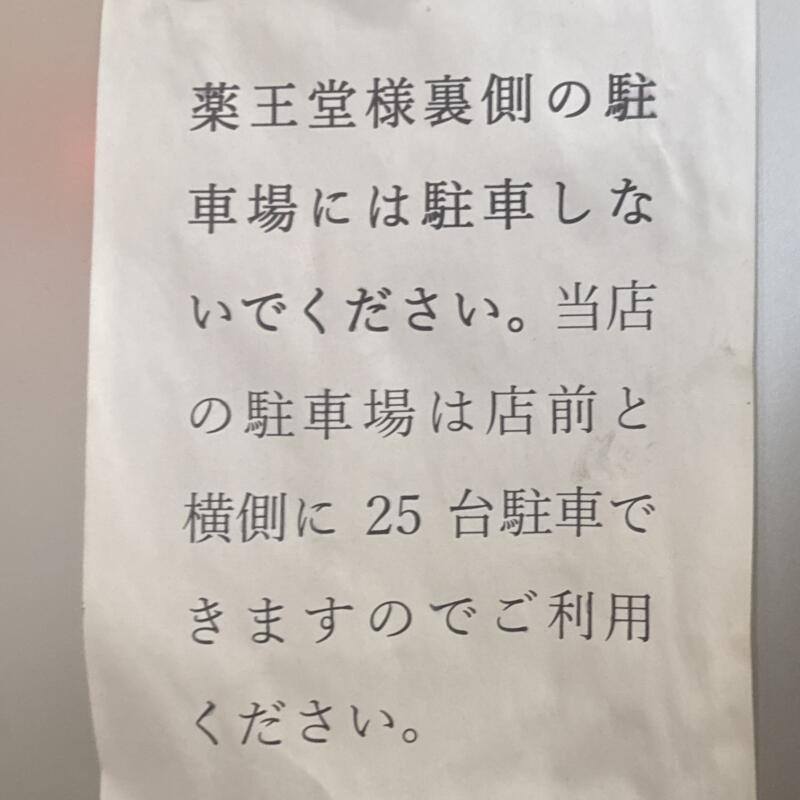 薬王堂様裏側の駐
車場には駐車しな
いでください。当店
の駐車場は店前と
横側に 25 台駐車で
きますのでご利用
ください。